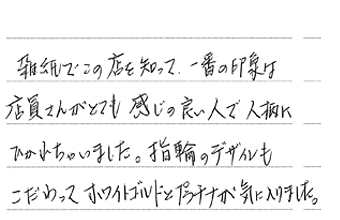 雑紙でこの店を知って、一番の印象は
店員さんがとても 感じの良い人で人柄に
ひかれちゃいました。指輪のデザインも
こだわって ホワイトゴールドとプラチナが 気に入りました。